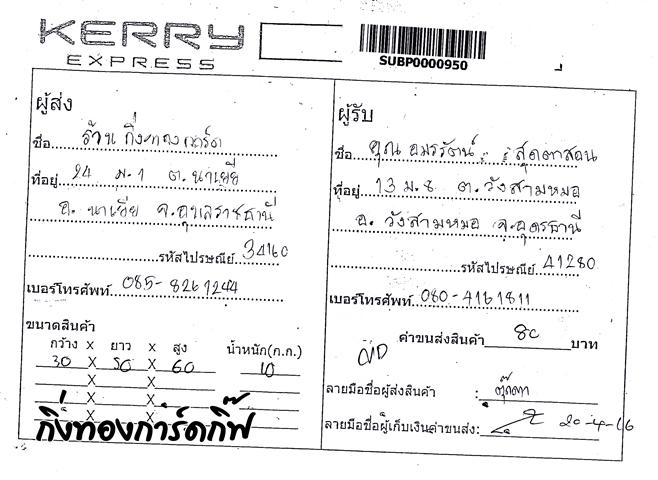 KERRY
EXPRESS
SUBP0000950
ผู้ส่ง
ชื่อ ร้าน กิ่งทองการ์ด
ที่อยู่ 24 ม.1 ต.นาเยีย
อ. นาเยีย จ.อุบลราชธานี
รหัสไปรษณีย์ 34160
เบอร์โทรศัพท์ 085-8261244
ขนาดสินค้า
กว้าง x ยาว x สูง น้ำหนัก(ก.ก.)
30 X 50 X 60 10
X X
X X
X X
กิ่งทองการ์ดกิ๊ฟ
ผู้รับ
ชื่อ คุณ อมรรัตน์ สุดตาสอน
ที่อยู่ 13 ม.8 ต.วังสามหมอ
อ. วังสามหมอ จ.อุดรธานี
รหัสไปรษณีย์ 41280
เบอร์โทรศัพท์ 080-4161811
ค่าขนส่งสินค้า 80 บาท
ลายมือชื่อผู้ส่งสินค้า : ตุ๊กตา
ลายมือชื่อผู้เก็บเงินค่าขนส่ง: 20-4-16